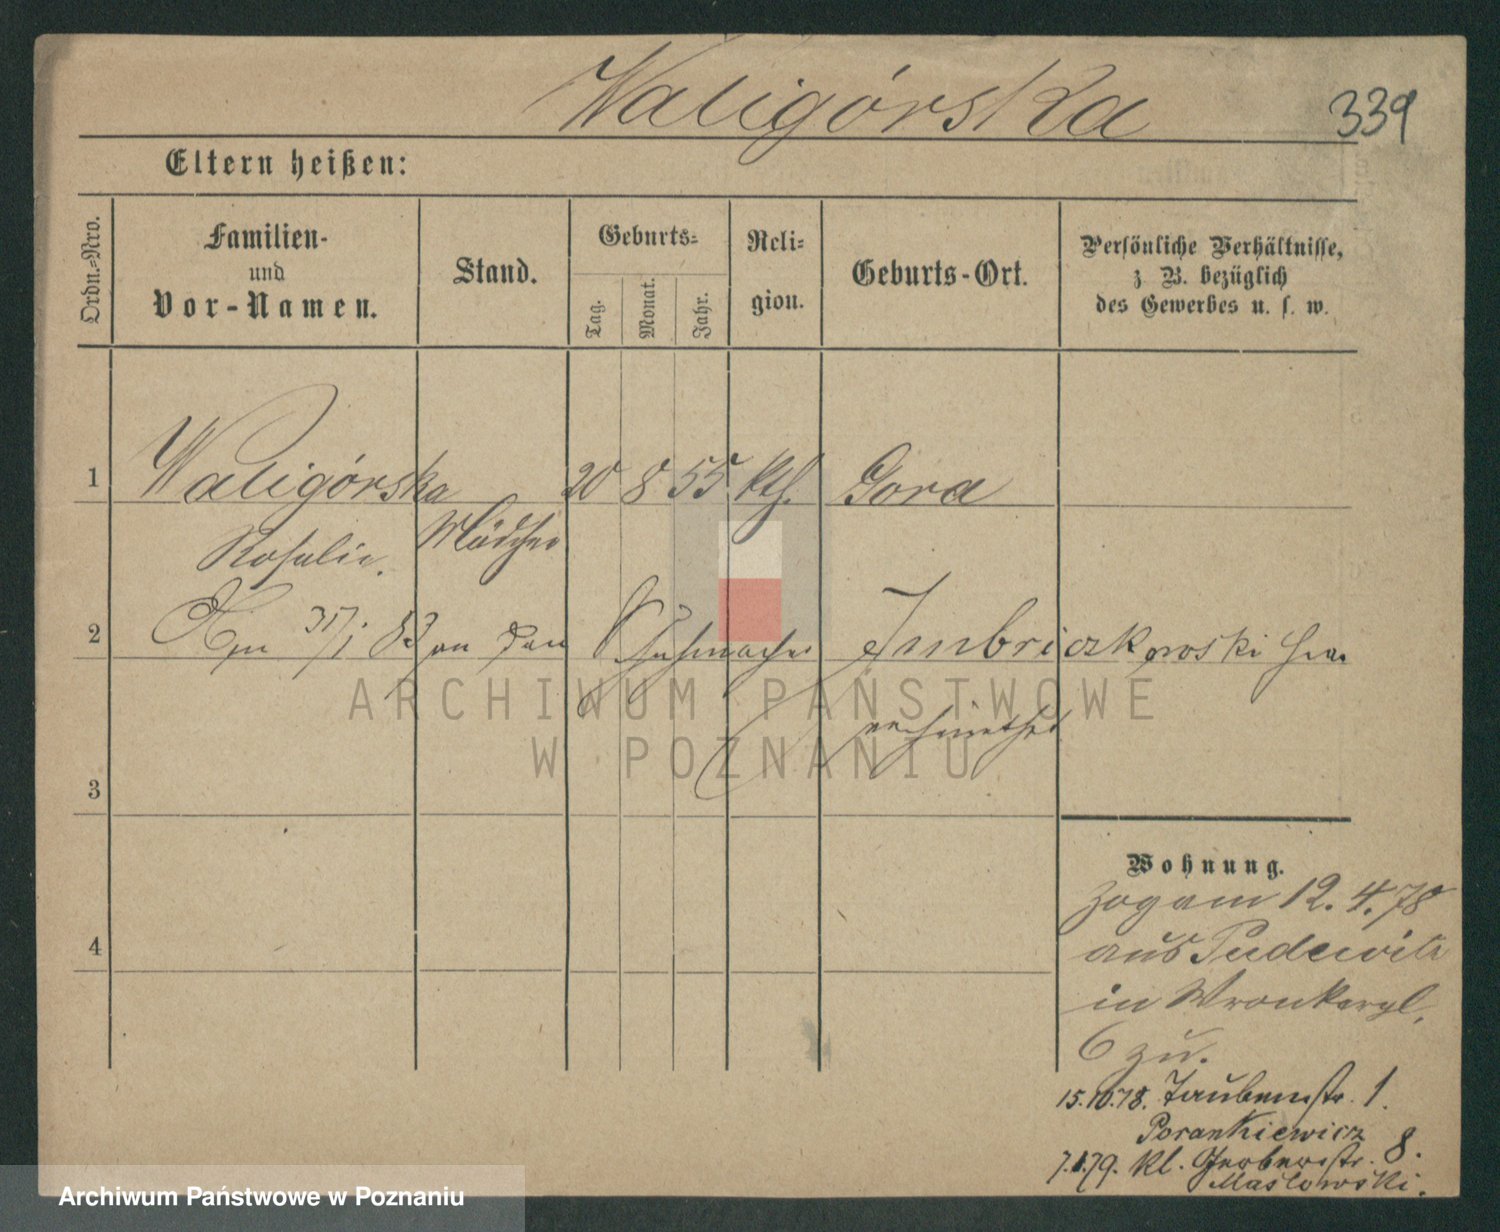 Waligórska 339
Eltern heißen:
Ordn.-Nro.
Familien-
und
Vor-Namen.
Stand.
Geburts-
Tag.
Monat.
Jahr.
Reli-
gion.
Geburts-Ort.
Persönliche Verhältnisse,
z. B. bezüglich
des Gewerbes u. s. w.
1 Waligórska 20 8 55 kth. Gora
Rosalie. Mädchen
2 31/1 83 an den Schuhmacher Imbriczkowski
verheirathet
3
4
ARCHIWUM PAŃSTWOWE
W POZNANIU
Wohnung.
zog am 12. 4. 78
aus Pudewitz
in Wronkergl.
6 zu.
15.10.78. Taubenstr. 1.
Porankiewicz
7.1.79. kl. Gerberstr. 8.
Maslowski.
Archiwum Państwowe w Poznaniu